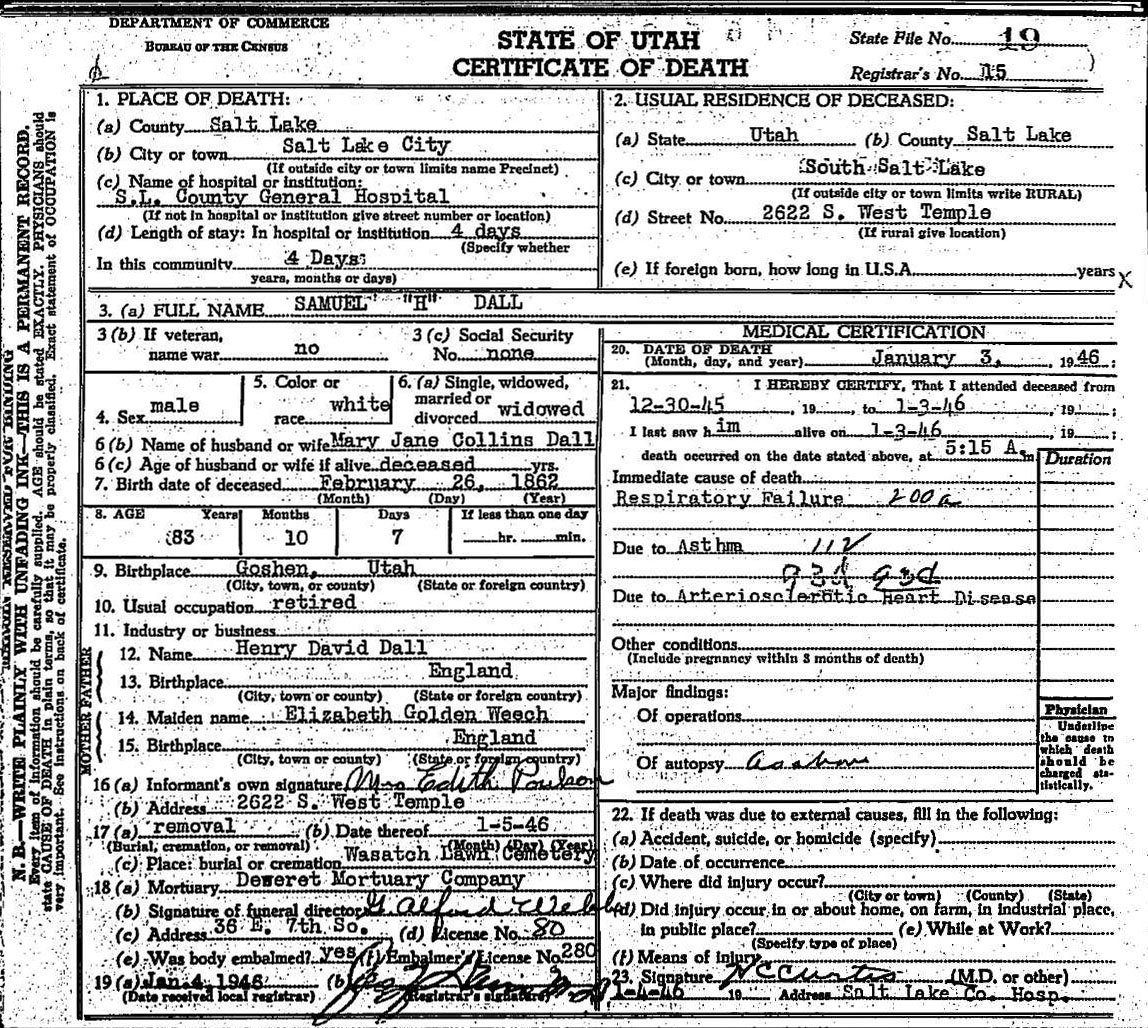 DEPARTMENT OF COMMERCE
BUREAU OF THE CENSUS
STATE OF UTAH
CERTIFICATE OF DEATH
State File No. 19
Registrar's No. 15
N. B.—WRITE PLAINLY WITH UNFADING INK—THIS IS A PERMANENT RECORD.
Every item of information should be carefully supplied. AGE should be stated EXACTLY. PHYSICIANS should
state CAUSE OF DEATH in plain terms, so that it may be properly classified. Exact statement of OCCUPATION is
very important. See instructions on back of certificate.
1. PLACE OF DEATH:
(a) County Salt Lake
(b) City or town Salt Lake City
(If outside city or town limits name Precinct)
(c) Name of hospital or institution:
S.L. County General Hospital
(If not in hospital or institution give street number or location)
(d) Length of stay: In hospital or institution 4 days
(Specify whether
In this community 4 Days
years, months or days)
2. USUAL RESIDENCE OF DECEASED:
(a) State Utah (b) County Salt Lake
(c) City or town South Salt Lake
(If outside city or town limits write RURAL)
(d) Street No. 2622 S. West Temple
(If rural give location)
(e) If foreign born, how long in U.S.A. years X
3. (a) FULL NAME SAMUEL "H" DALL
3 (b) If veteran,
name war no
3 (c) Social Security
No. none
4. Sex male
5. Color or
race white
6. (a) Single, widowed,
married or
divorced widowed
6 (b) Name of husband or wife Mary Jane Collins Dall
6 (c) Age of husband or wife if alive deceased yrs.
7. Birth date of deceased February 26, 1862
(Month) (Day) (Year)
8. AGE Years Months Days If less than one day
83 10 7 hr. min.
9. Birthplace Goshen, Utah
(City, town, or county) (State or foreign country)
10. Usual occupation retired
11. Industry or business
FATHER
12. Name Henry David Dall
13. Birthplace England
(City, town or county) (State or foreign country)
MOTHER
14. Maiden name Elizabeth Golden Weech
15. Birthplace England
(City, town or county) (State or foreign country)
16 (a) Informant's own signature Mrs Edith Poulson
(b) Address 2622 S. West Temple
17 (a) removal (b) Date thereof 1-5-46
(Burial, cremation, or removal) (Month) (Day) (Year)
(c) Place: burial or cremation Wasatch Lawn Cemetery
18 (a) Mortuary Deweret Mortuary Company
(b) Signature of funeral director G. Alford Webb
(c) Address 36 E. 7th So. (d) License No. 80
(e) Was body embalmed? yes (f) Embalmer's License No. 280
19 (a) Jan 4 1946 (b)
(Date received local registrar) (Registrar's signature)
MEDICAL CERTIFICATION
20. DATE OF DEATH
(Month, day, and year) January 3, 1946
21. I HEREBY CERTIFY, That I attended deceased from
12-30-45, 19 , to 1-3-46, 19 ;
I last saw him alive on 1-3-46, 19 ;
death occurred on the date stated above, at 5:15 A.m
Duration
Immediate cause of death
Respiratory Failure 200a
Due to Asthma 112
93d 93d
Due to Arteriosclerotic Heart Disease
Other conditions
(Include pregnancy within 3 months of death)
Major findings:
Of operations
Of autopsy
Physician
Underline
the cause to
which death
should be
charged sta-
tistically.
22. If death was due to external causes, fill in the following:
(a) Accident, suicide, or homicide (specify)
(b) Date of occurrence
(c) Where did injury occur?
(City or town) (County) (State)
(d) Did injury occur in or about home, on farm, in industrial place,
in public place? (e) While at Work?
(Specify type of place)
(f) Means of Injury
23. Signature H C Curtis (M.D. or other)
1-4-46 19 Address Salt Lake Co. Hosp.